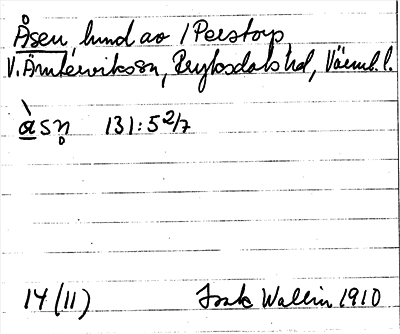 Åsen, lund av 1 Perstorp,
V. Ämterviks sn, Fryksdals hd, Värml. l.
àsn̥ 131:5 2/7
14 (11) Isak Wallin 1910